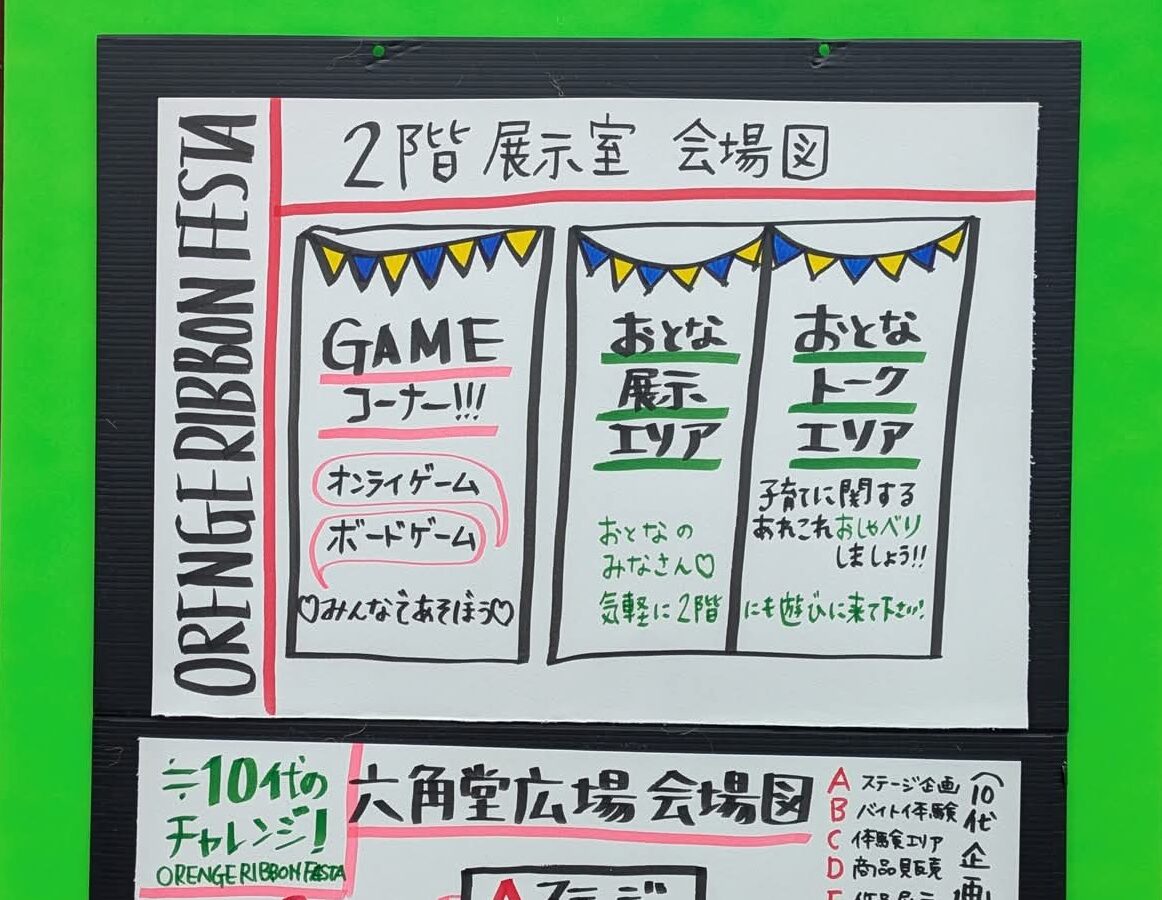 ORENGE RIBBON FESTA
2階 展示室 会場図
GAME
コーナー!!!
オンライゲーム
ボードゲーム
♡みんなであそぼう♡
おとな
展示
エリア
おとなの
みなさん♡
気軽に2階にも遊びに来て下さい!
おとな
トーク
エリア
子育てに関する
あれこれおしゃべり
しましょう!!
≒10代の
チャレンジ!
ORENGE RIBBON FESTA
六角堂広場 会場図
A ステージ
A ステージ企画
B バイトイ体験
C 体験エリア
D 商品販売
E 作品展示
(10代企画